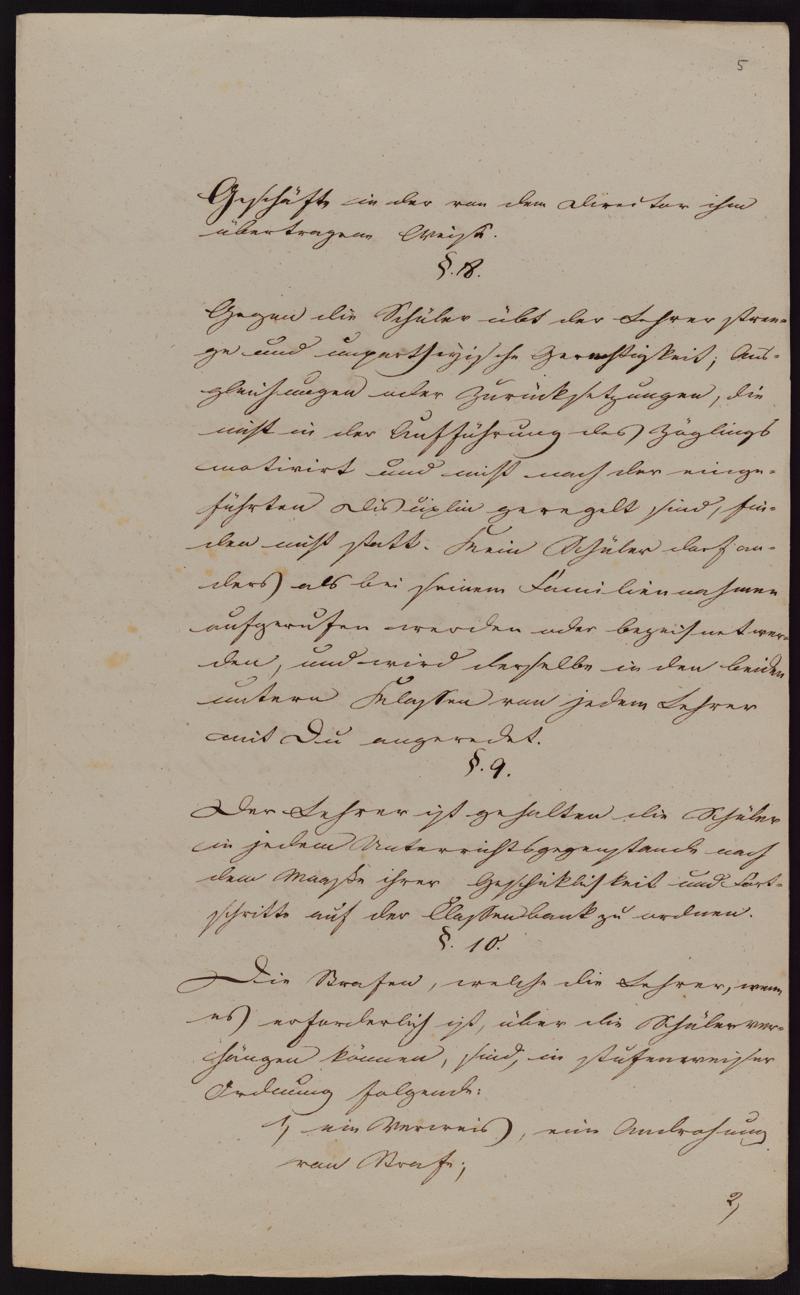 5
Geschäfte in der von dem Director ihm
übertragenen Weise.
§. 8.
Gegen die Schüler übt der Lehrer stren-
ge und unpartheyische Gerechtigkeit; Aus-
gleichungen oder Zurücksetzungen, die
nicht in der Aufführung des Zöglings
motivirt und nicht nach der einge-
führten Disciplin geregelt sind, fin-
den nicht statt. Kein Schüler darf an-
ders als bei seinem Familiennahmen
aufgerufen werden oder bezeichnet wer-
den, und wird derselbe in den beiden
untern Klassen von jedem Lehrer
mit Du angeredet.
§. 9.
Der Lehrer ist gehalten die Schüler
in jedem Unterrichtsgegenstande nach
dem Maaße ihrer Geschiklichkeit und Fort-
schritte auf der Classenbank zu ordnen.
§. 10.
Die Strafen, welche die Lehrer, wenn
es erforderlich ist, über die Schüler ver-
hängen können, sind, in stufenweiser
Ordnung folgende:
1, ein Verweis, eine Androhung
von Strafe;
2,